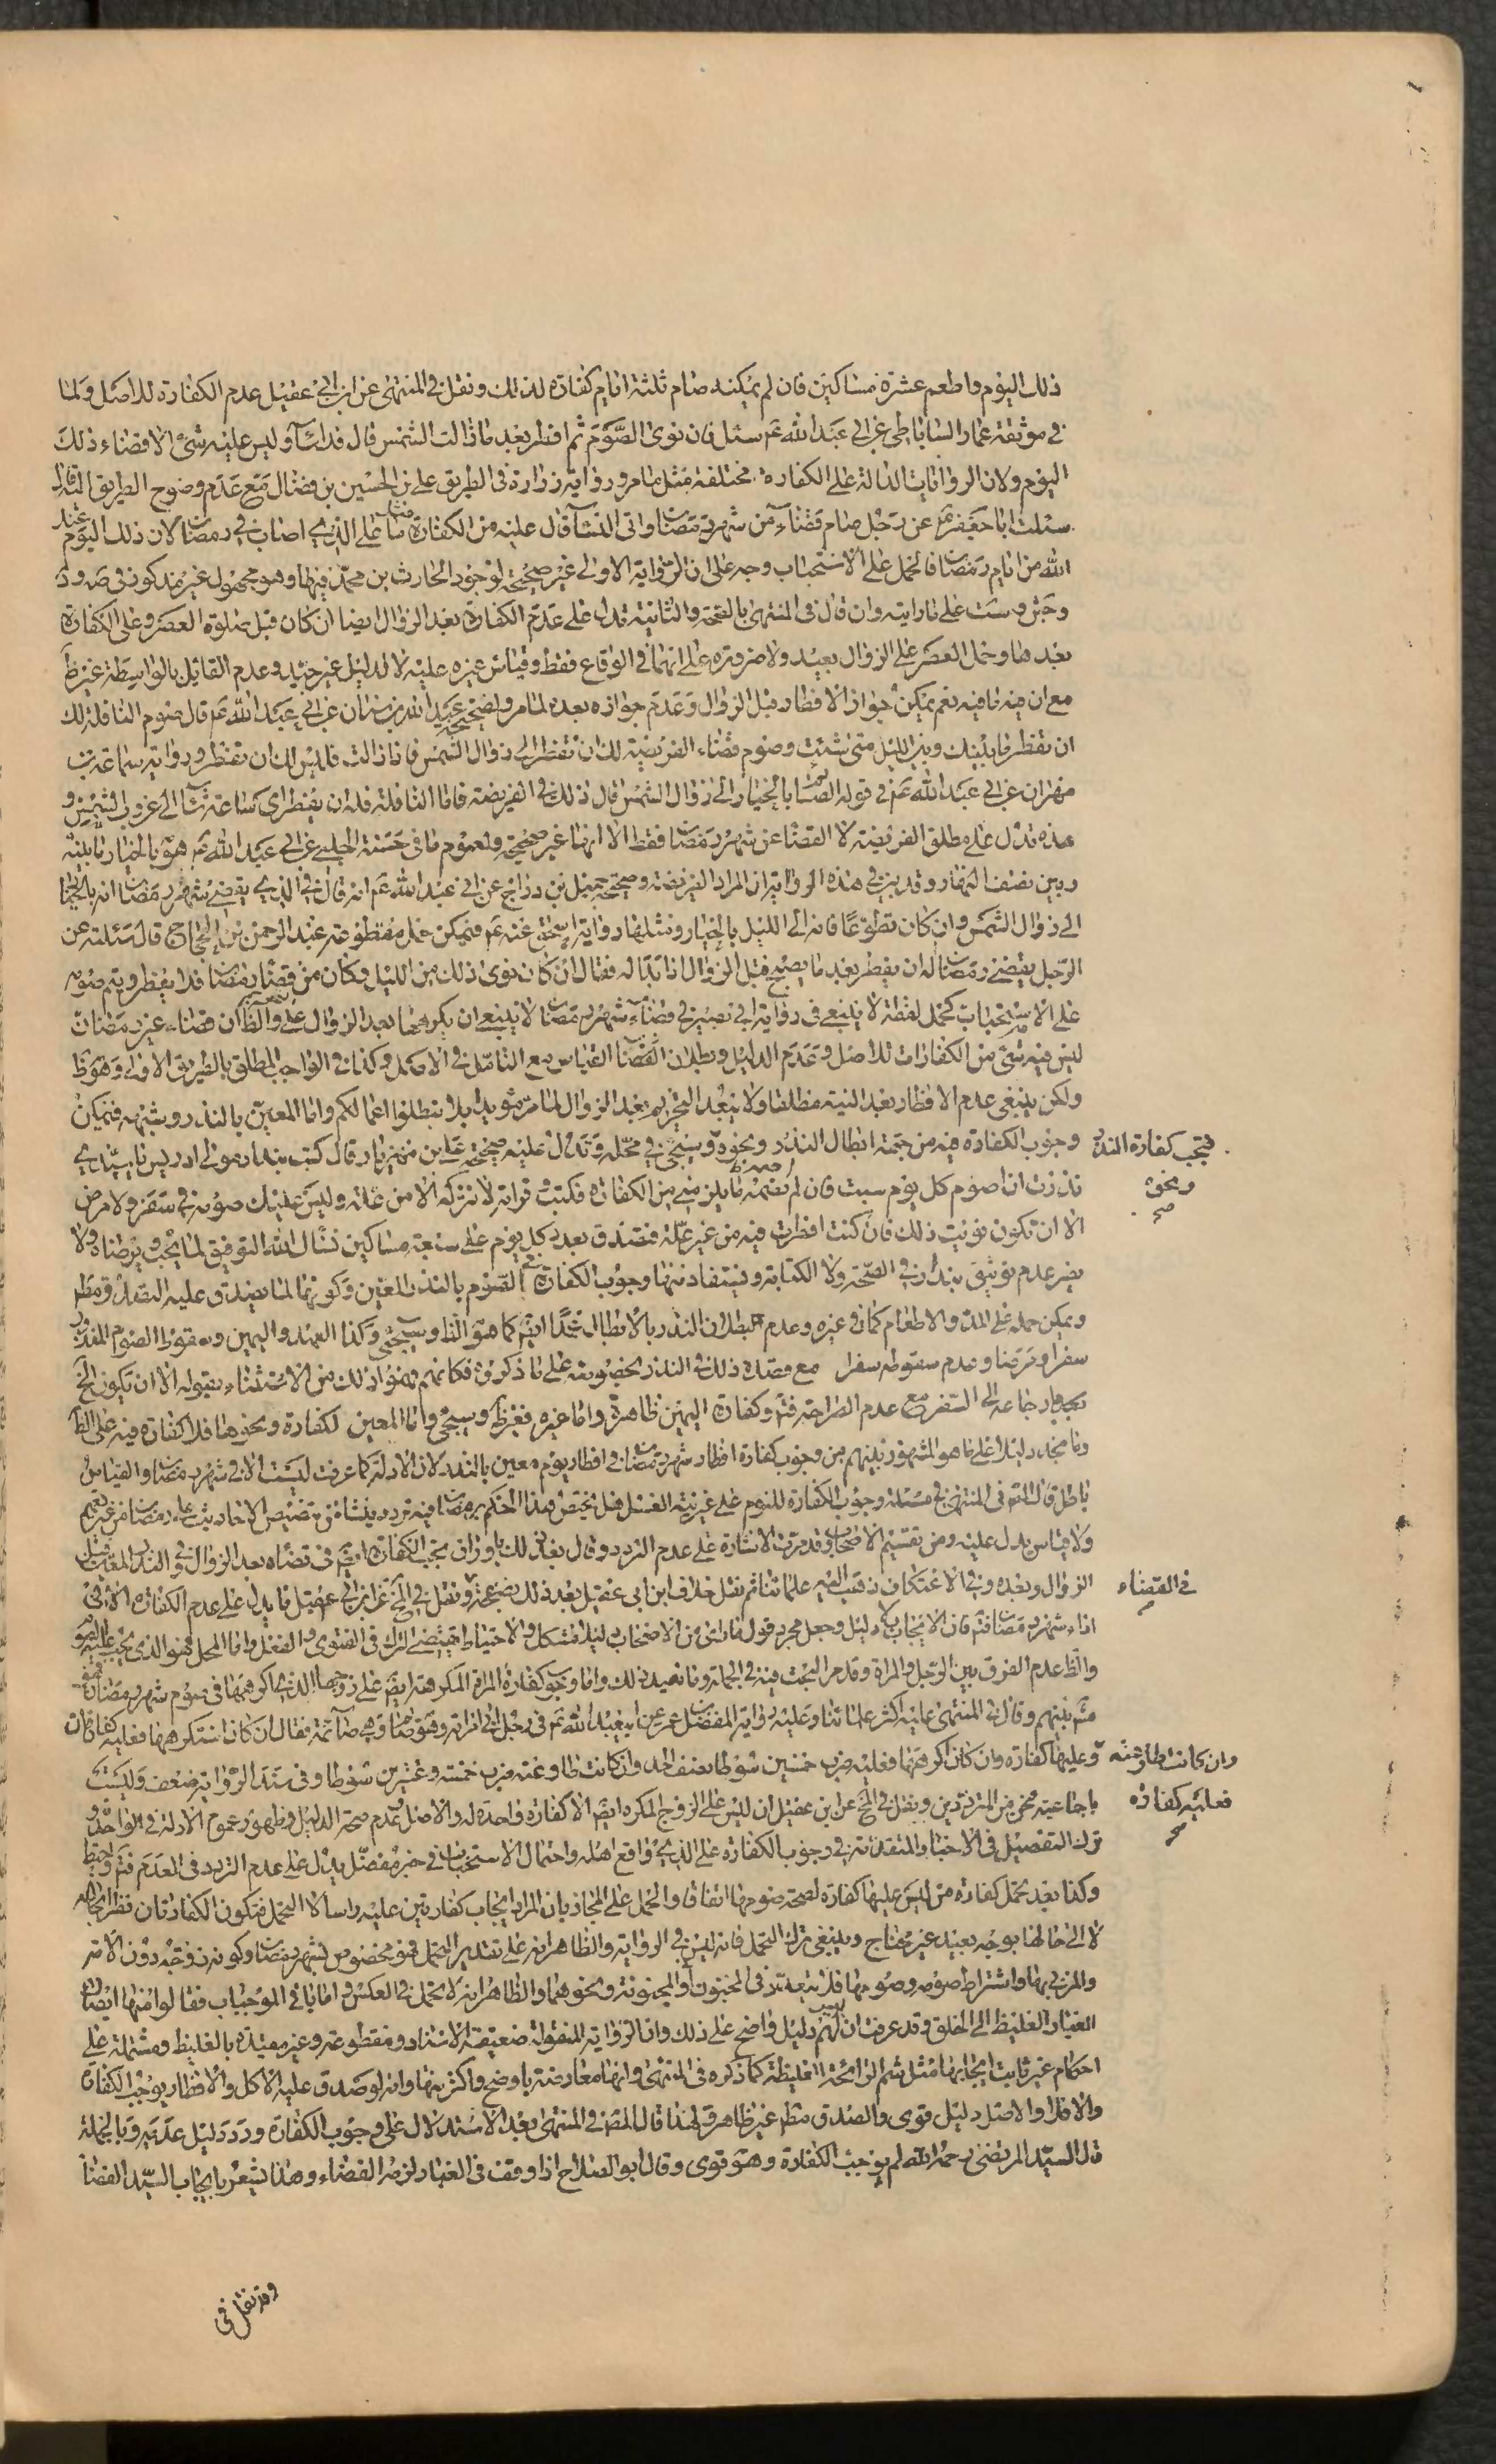 ذلك اليوم واطعم عشرة مساكين فان لم يمكنه صام ثلثة ايام كفارة لذلك ونقل فى المنتهى عن ابن ابى عقيل عدم الكفارة للاصل ولما
فى موثقة عمار الساباطى عن ابى عبد الله عم سئل فان نوى الصوم ثم افطر بعد ما زالت الشمس قال قد اساء وليس عليه شئ الا قضاء ذلك
اليوم ولان الروايات الدالة على الكفارة مختلفة مثل ما مر ورواية زرارة فى الطريق على بن الحسين بن فضال مع عدم وضوح الطريق اليه قال
سئلت ابا جعفر عم عن رجل صام قضاء من شهر رمضان واتى النساء قال عليه من الكفارة ما على الذى اصاب فى رمضان لان ذلك اليوم عند
الله من ايام رمضان فالحمل على الاستحباب وجه على ان الرواية الاولى غير صحيحة لوجود الحارث بن محمد فيها وهو مجهول غير مذكور فى صه ود
وجش وست على ما رايته وان قال فى المنتهى بالصحة والثانية تدل على عدم الكفارة بعد الزوال ايضا ان كان قبل صلوة العصر وعلى الكفارة
بعدها وحمل العصر على الزوال بعيد ولا ضرورة على انهما فى الوقاع فقط وقياس غيره عليه لا لدليل غير جيد وعدم القائل بالواسطة غير ظ
مع ان فيه ما فيه نعم يمكن جواز الافطار قبل الزوال وعدم جوازه بعده لما مر ولصحيحة عبد الله بن سنان عن ابى عبد الله عم قال صوم النافلة لك
ان تفطر ما بينك وبين الليل متى شئت وصوم قضاء الفريضة لك ان تفطر الى زوال الشمس فاذا زالت فليس لك ان تفطر ورواية سماعة بن
مهران عن ابى عبد الله عم فى قوله الصائم بالخيار الى زوال الشمس قال ذلك فى الفريضة فاما النافلة فله ان يفطر اى ساعة شاء الى غروب الشمس و
هذه تدل على مطلق الفريضة لا القضاء عن شهر رمضان فقط الا انها غير صحيحة ولعموم ما فى حسنة الحلبى عن ابى عبد الله عم هو بالخيار ما بينه
وبين نصف النهار وقد بين فى هذه الرواية ان المراد الفريضة وصحيحة جميل بن دراج عن ابى عبد الله عم انه قال فى الذى يقضى شهر رمضان انه بالخيار
الى زوال الشمس وان كان تطوعا فانه الى الليل بالخيار ومثلها رواية اسحق عنه عم فيمكن حمل مقطوعة عبد الرحمن بن الحجاج قال سئلته عن
الرجل يقضى رمضان اله ان يفطر بعد ما يصبح قبل الزوال اذا بدا له فقال ان كان نوى ذلك من الليل وكان من قضاء رمضان فلا يفطر ويتم صومه
على الاستحباب كحمل لفظة لا ينبغى فى رواية ابى بصير فى قضاء شهر رمضان لا ينبغى ان يكرهها بعد الزوال على والظ ان قضاء غير رمضان
ليس فيه شئ من الكفارات للاصل وعدم الدليل وبطلان القياس مع التامل فى الاصل وكذا فى الواجب المطلق بالطريق الاولى وهو ظ
ولكن ينبغى عدم الافطار بعد النية مطلقا ولا يبعد التحريم بعد الزوال لما مر مؤيدا بلا تبطلوا اعمالكم واما المعين بالنذر وشبهه فيمكن
وجوب الكفارة فيه من جهة ابطال النذر ونحوه وسيجئ فى محله وتدل عليه صحيحة على بن مهزيار قال كتب بندار مولى ادريس يا سيدى
فتجب كفارة النذر
ونحوه
صح
نذرت ان اصوم كل يوم سبت فان لم اصمه ما يلزمنى من الكفارة فكتب وقراته لا تتركه الا من علة وليس عليك صومه فى سفر ولا مرض
الا ان تكون نويت ذلك فان كنت افطرت فيه من غير علة فتصدق بعدد كل يوم على سبعة مساكين نسأل الله التوفيق لما يحب ويرضاه ولا
يضر عدم توثيق بندار فى الصحة ولا الكتابة ويستفاد منها وجوب الكفارة الصوم بالنذر المعين وكونهما لما يصدق عليه التصدق مط
ويمكن حمله على المد والاطعام كما فى غيره وعدم بطلان النذر بالابطال عمدا ايض كما هو الظ وسيجئ وكذا العهد واليمين وسقوط الصوم المنذور
سفرا ومرضا وعدم سقوطه سفرا مع قصده ذلك فى النذر بخصوصه على ما ذكروه فكانهم فهموا ذلك من الاستثناء بقوله الا ان تكون الخ
بعد ارجاعه الى السفر مع عدم الصراحة فتم وكفارة اليمين ظاهرة واما غيره فغير ظ وسيجئ واما المعين لكفارة ونحوها فلا كفارة فيه على الظ
وما نجد دليلا على ما هو المشهور بينهم من وجوب كفارة افطار شهر رمضان فى افطار يوم معين بالنذر لان الادلة كما عرفت ليست الا فى شهر رمضان والقياس
باطل قال المص فى المنتهى فى مسئلة وجوب الكفارة للنوم على غير نية الغسل هل يختص هذا الحكم برمضان فيه تردد ينشأ من تخصيص الاحاديث على رمضان من غير تعميم
ولا قياس يدل عليه ومن تقسيم الاصحاب وقد مرت الاشارة على عدم التردد وقال بعد ذلك باوراق يجب الكفارة ايض فى قضاه بعد الزوال وفى النذر المعين قبل
الزوال وبعده وفى الاعتكاف ذهب اليه علمائنا ثم نقل خلاف ابن ابى عقيل بعد ذلك بصفحة ونقل فى المخ عن ابن ابى عقيل ما يدل على عدم الكفارة الا فى
فى القضاء
صح
اداء شهر رمضان فتم فان الايجاب بلا دليل وجعل مجرد قول من الاصحاب دليلا مشكل والاحتياط يقتضى الترك فى الفتوى والفعل واما المحل فهو الذى يجب عليه الصوم
والظ عدم الفرق بين الرجل والمراة وقد مر البحث فيه فى الجملة وما نعيد ذلك واما وجوب كفارة المراة المكرهة ايض على زوجها الذى اكرهها فى صوم شهر رمضان فهو
مشهور بينهم وقال فى المنتهى عليه اكثر علمائنا وعليه رواية المفضل بن عمر عن ابى عبد الله عم فى رجل اتى امراته وهو صائم وهى صائمة فقال ان كان استكرهها فعليه كفارتان
وعليها كفارة وان كان اكرهها فعليه ضرب خمسين سوطا نصف الحد وان كانت طاوعته ضرب خمسة وعشرين سوطا وفى سند الرواية ضعف وليست
وان كانت طاوعته
فعليه كفارة
صح
باجماعية لمخ من المترددين ونقل فى المخ عن ابن عقيل ان ليس على الزوج المكره ايض الا كفارة واحدة له والاصل وعدم صحة الدليل وظهور عموم الادلة فى الواحدة و
ترك التفصيل فى الاخبار المتقدمة فى وجوب الكفارة على الذى واقع اهله واحتمال الاستحباب فى خبر مفضل يدل على عدم التردد فى العدم فتم واحفظ
وكذا بعد تحمل كفارة من ليس عليها كفارة لصحة صومها اتفاقا والحمل على المجاز بان المراد ايجاب كفارتين عليه راسا لا التحمل فتكون الكفارتان نظرا الى حاله
لا الى حالها بوجه بعيد غير محتاج وينبغى ترك التحمل فانه ليس فى الرواية والظاهر انه على تقدير التحمل فهو مخصوص بشهر رمضان وكونه زوجة دون الامة
والمزنى بها واشتراط صومه وصومها فلا يتعدى فى المجنون او المجنونة ونحوهما والظاهر انه لا تحمل فى العكس واما باقى الموجبات فقالوا منها ايصال
الغبار الغليظ الى الحلق وقد عرفت ان ليس لهم دليل واضح على ذلك وان الرواية المنقولة ضعيفة الاسناد ومقطوعة وغير مقيدة بالغليظ ومشتملة على
احكام غير ثابت ايجابها مثل شم الرائحة الغليظة كما ذكره فى المنتهى وانها معارضة باوضح واكثر منها وانه لو صدق عليه الاكل والافطار يوجب الكفارة
والا فلا والاصل دليل قوى والصدق مط غير ظاهر ولهذا قال المص فى المنتهى بعد الاستدلال على وجوب الكفارة وردد دليل عدمه وبالجملة
قال السيد المرتضى رحمه الله لم يوجب الكفارة وهو قوى وقال ابو الصلاح اذا وقف فى الغبار لزمه القضاء وهذا يشعر بايجاب السيد القضاء
وقد نقل فى